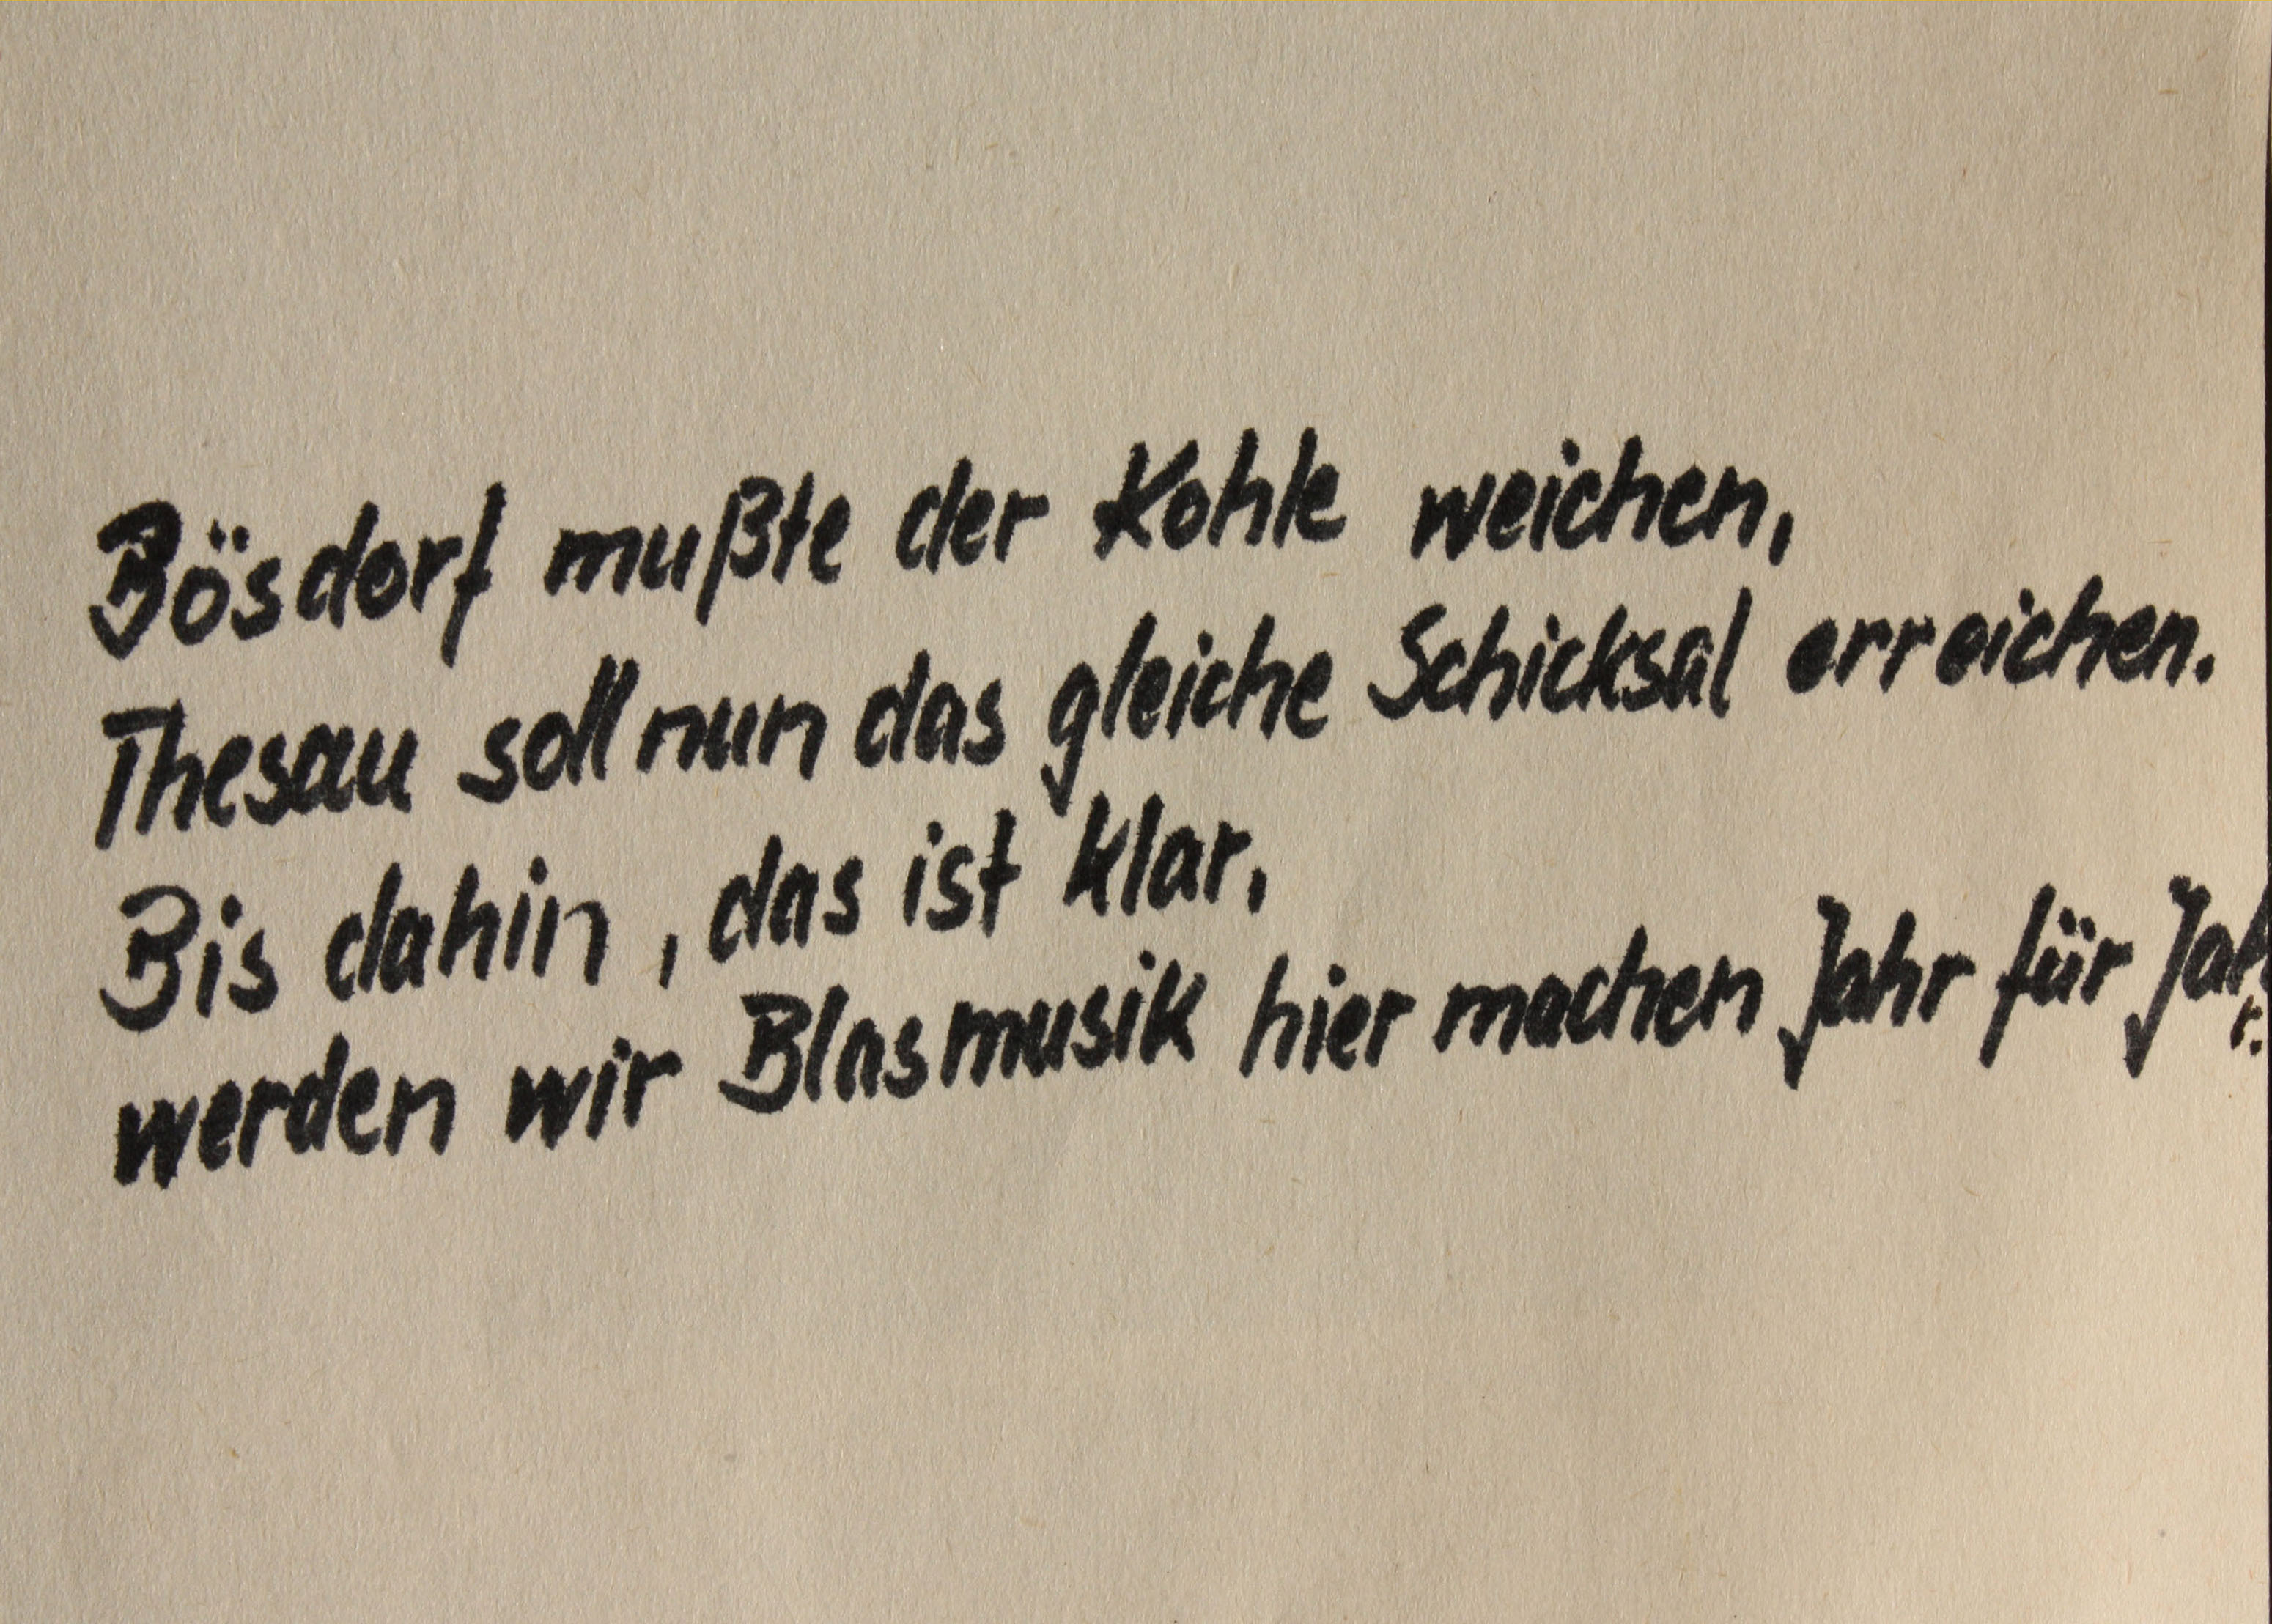 Bösdorf mußte der Kohle weichen,
Thesau soll nun das gleiche Schicksal erreichen.
Bis dahin, das ist klar,
werden wir Blasmusik hier machen Jahr für Jahr.